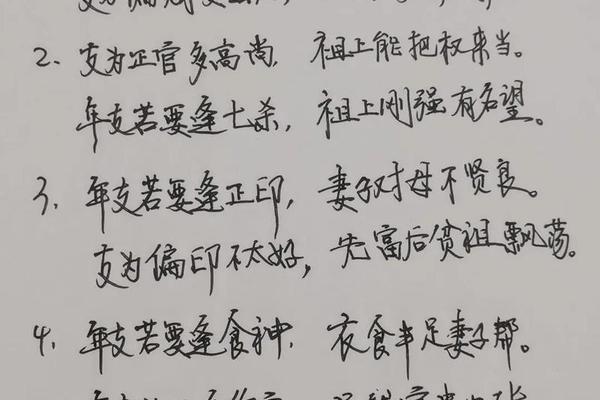 支为偏
2、支为正官多高尚, 祖上能把权来当。
年支若要逢七杀, 祖上刚强有名望。
3、年支若要逢正印, 妻子对母不贤良。
支为偏印不太好, 先富后贫祖飘荡。
4、年支若要逢食神, 衣食丰足妻子帮。